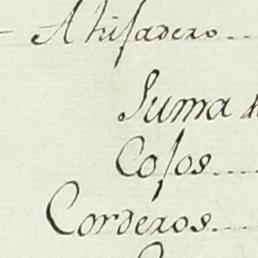 - Ahijadero...
Suma
Cojos....
Corderos....